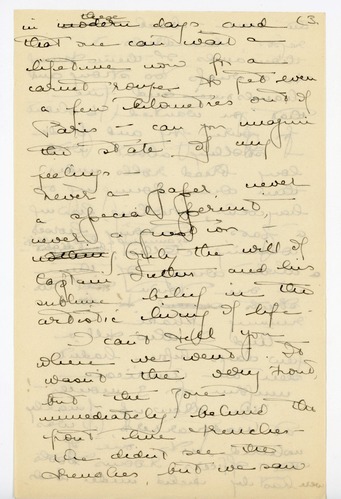 these
in modern days and (3.
that one can wait a
lifetime now for a
carnet rouge to get even
a few kilometres out of
Paris - can you imagine
the state of my
feelings -
never a paper never
a special permit,
never a question -
nothing only the will of
Captain and his
sublime belief in the
artistic living of life.
I can't tell you
where we went. It
wasn't the very front,
but the zone
immediately behind the
front line trenches -
We didn't see the
trenches but we saw